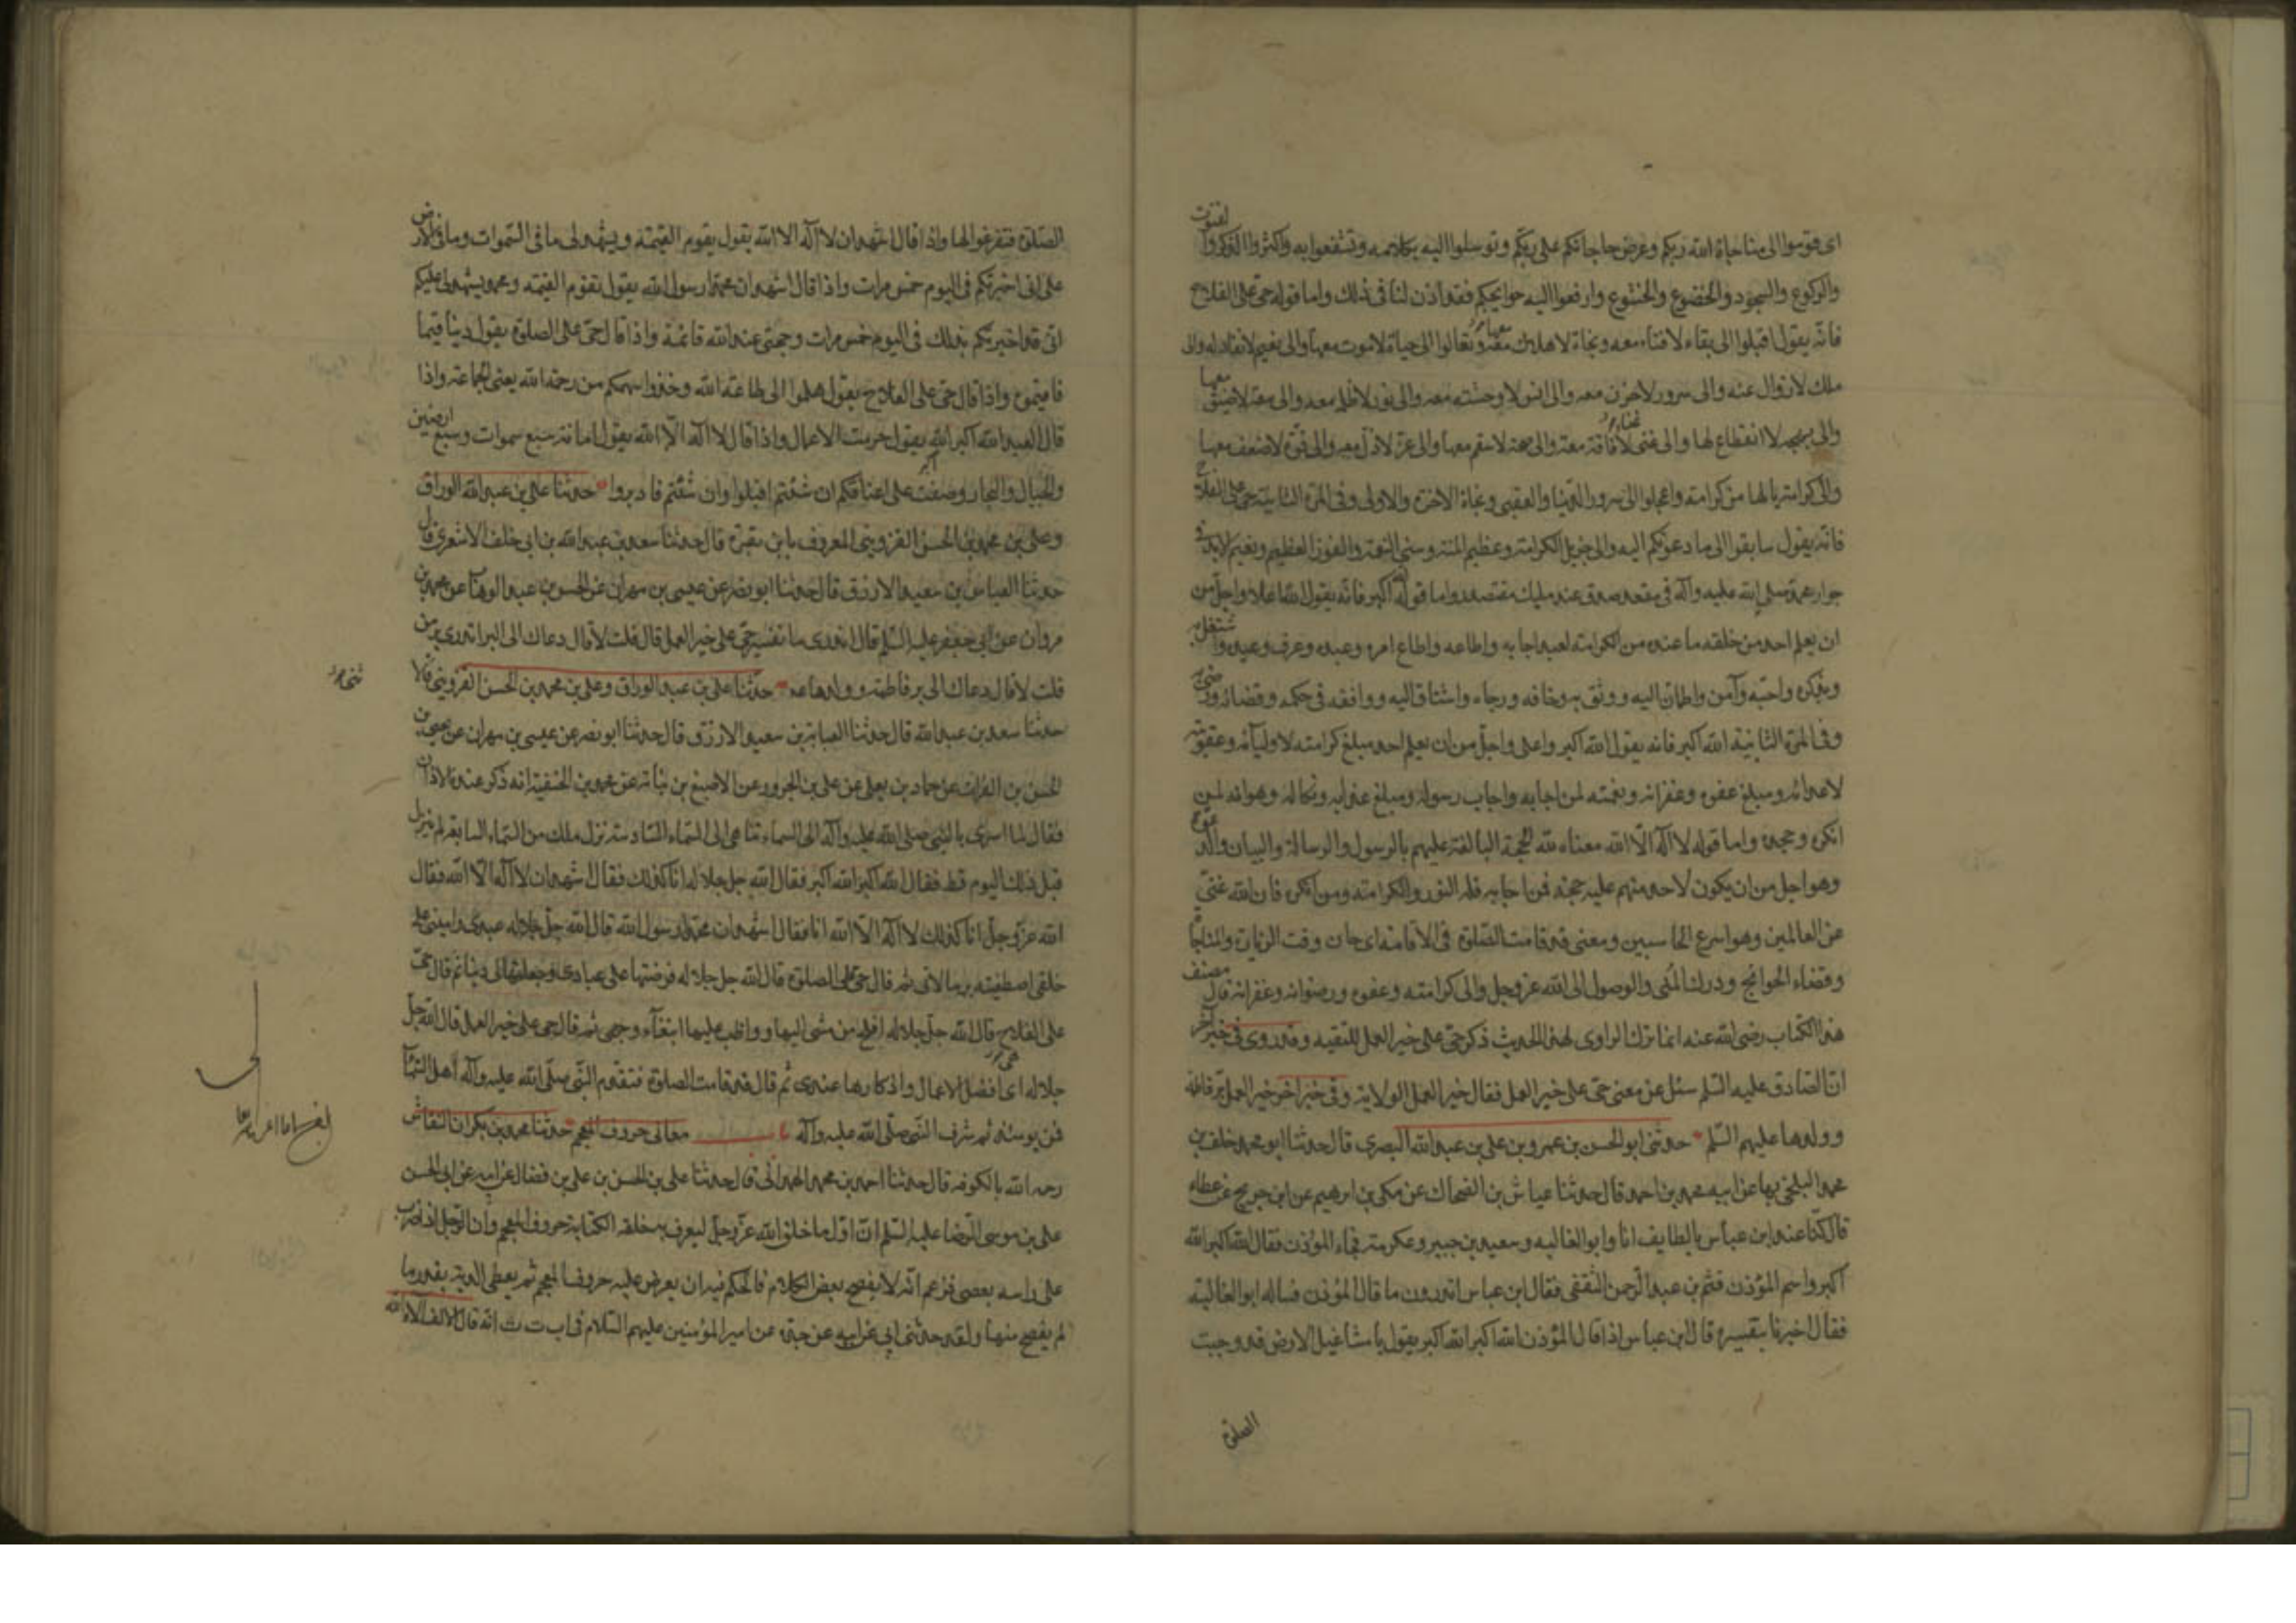 اى قوموا الى مناجاة الله ربكم وعرض حاجاتكم على ربكم وتوسلوا اليه بكلامه وتشفعوا به واكثروا الذكر والقنوت
والركوع والسجود والخضوع والخشوع وارفعوا اليه حوايجكم فقد اذن لنا فى ذلك واما قوله حى على الفلاح
فانه يقول اقبلوا الى بقاء لافناء معه ونجاة لاهلاك معها وتعالوا الى حياة لاموت معها والى نعيم لانفاد له والى
ملك لازوال عنه والى سرور لاحزن معه والى انس لاوحشة معه والى نور لاظلمة معه والى سعة لاضيق معها
والى بهجة لاانقطاع لها والى غنى لافاقة معه والى صحة لاسقم معها والى عز لاذل معه والى قوة لاضعف معها
والى كرامة يالها من كرامة واعجلوا الى سرور الدنيا والعقبى ونجاة الاخرة والاولى وفى المرة الثانية حى على الفلاح
فانه يقول سابقوا الى ما دعوتكم اليه والى جزيل الكرامة وعظيم المنة وسنى النعمة والفوز العظيم ونعيم الابد فى
جوار محمد صلى الله عليه وآله فى مقعد صدق عند مليك مقتدر واما قوله الله اكبر فانه يقول الله اعلا واجل من
ان يعلم احد من خلقه ما عنده من الكرامة لعبد اجابه واطاعه واطاع امره وعبده وعرف وعيده واشتغل به
وبذكره واحبه وآمن واطمان اليه ووثق به وخافه ورجاه واشتاق اليه ووافقه فى حكمه وقضائه ورضى به
وفى المرة الثانية الله اكبر فانه يقول الله اكبر واعلى واجل من ان يعلم احد مبلغ كرامته لاوليائه وعقوبته
لاعدائه ومبلغ عفوه وغفرانه ونعمته لمن اجابه واجاب رسوله ومبلغ عذابه ونكاله وهوانه لمن
انكره وجحده واما قوله لااله الا الله معناه لله الحجة البالغة عليهم بالرسول والرسالة والبيان والدعوة
وهو اجل من ان يكون لاحد منهم عليه حجة فمن اجابه فله النور والكرامة ومن انكره فان الله غنى
عن العالمين وهو اسرع الحاسبين ومعنى قد قامت الصلوة فى الاقامة اى حان وقت الزيارة والمناجاة
وقضاء الحوائج ودرك المنى والوصول الى الله عز وجل والى كرامته وعفوه ورضوانه وغفرانه قال مصنف
هذا الكتاب رضى الله عنه انما ترك الراوى لهذا الحديث ذكر حى على خير العمل للتقيه وقد روى فى خبر آخر
ان الصادق عليه السلم سئل عن معنى حى على خير العمل فقال خير العمل الولاية وفى خبر اخر خير العمل بر فاطمة
وولدها عليهم السلم حدثنى ابو الحسن بن عمرو بن على بن عبد الله البصرى قال حدثنا ابو محمد خلف بن
محمد البلخى بها عن ابيه محمد بن احمد قال حدثنا عياش بن الضحاك عن مكى بن ابرهيم عن ابن جريج عن عطاء
قال كنا عند ابن عباس بالطايف انا وابو العاليه وسعيد بن جبير وعكرمة فجاء المؤذن فقال الله اكبر الله
اكبر واسم المؤذن قثم بن عبد الرحمن الثقفى فقال ابن عباس اتدرون ما قال المؤذن فساله ابو العالية
فقال اخبرنا بتفسيره قال ابن عباس اذا قال المؤذن الله اكبر الله اكبر يقول يا مشاغيل الارض قد وجبت
الصلوة
الصلوة فتفرغوا لها واذا قال اشهد ان لااله الا الله يقول يقوم القيمة ويشهد لى ما فى السموات وما فى الارض
على انى اخبرتكم فى اليوم خمس مرات واذا قال اشهد ان محمدا رسول الله يقول تقوم القيمه ومحمد يشهد لى عليكم
انى قد اخبرتكم بذلك فى اليوم خمس مرات وحجتى عند الله قائمة واذا قال حى على الصلوة يقول دينا قيما
فاقيموه واذا قال حى على الفلاح يقول هلموا الى طاعة الله وخذوا سهمكم من رحمة الله يعنى الجماعة واذا
قال العبد الله اكبر الله اكبر يقول حرمت الاعمال واذا قال لااله الا الله يقول امانة سبع سموات وسبع ارضين
والجبال والبحار وضعت على اعناقكم ان شئتم اقبلوا وان شئتم فادبروا حدثنا على بن عبد الله الوراق
وعلى بن محمد بن الحسن القزوينى المعروف بابن مقبرة قال حدثنا سعد بن عبد الله بن ابى خلف الاشعرى قال
حدثنا العباس بن سعيد الازرق قال حدثنا ابو نصر عن عيسى بن مهران عن الحسن بن عبد الوهاب عن محمد بن
مروان عن ابى جعفر عليه السلم قال اتدرى ما تفسير حى على خير العمل قال قلت لا قال دعاك الى البر اتدرى بر من
قلت لا قال دعاك الى بر فاطمة وولدها عه حدثنا على بن عبد الوراق وعلى بن محمد بن الحسن القزوينى قالا
حدثنا سعد بن عبد الله قال حدثنا العباس بن سعيد الازرق قال حدثنا ابو نصر عن عيسى بن مهران عن يحيى بن
الحسن بن الفرات عن حماد بن يعلى عن على بن الحزور عن الاصبغ بن نباتة عن محمد بن الحنفية انه ذكر عنده الاذان
فقال لما اسرى بالنبى صلى الله عليه وآله الى السماء تناهى الى السماء السادسة نزل ملك من السماء السابعة لم ينزل
قبل ذلك اليوم قط فقال الله اكبر الله اكبر فقال الله جل جلاله انا كذلك فقال اشهد ان لااله الا الله فقال
الله عز وجل انا كذلك لااله الا الله انا فقال اشهد ان محمدا رسول الله قال الله جل جلاله عبدى وامينى على
خلقى اصطفيته برسالاتى ثم قال حى على الصلوة قال الله جل جلاله فرضتها على عبادى وجعلتها لى دينا ثم قال حى
على الفلاح قال الله جل جلاله افلح من مشى اليها وواظب عليها ابتغاء وجهى ثم قال حى على خير العمل قال الله جل
جلاله اى افضل الاعمال وازكاها عندى ثم قال قد قامت الصلوة فتقدم النبى صلى الله عليه وآله اهل السماء
فمن يومئذ ثم شرف النبى صلى الله عليه وآله باب معانى حروف المعجم حدثنا محمد بن بكران النقاش
رحمه الله بالكوفه قال حدثنا احمد بن محمد الهمدانى قال حدثنا على بن الحسن بن على بن فضال عن ابيه عن ابى الحسن
على بن موسى الرضا عليه السلم ان اول ما خلق الله عز وجل ليعرف به خلقه الكتابة حروف المعجم وان الرجل اذا ضرب
على راسه بعصى فزعم انه لا يفصح ببعض الكلام فالحكم فيه ان يعرض عليه حروف المعجم ثم يعطى الدية بقدر ما
لم يفصح منها ولقد حدثنى ابى عن ابيه عن جده عن امير المؤمنين عليهم السلام فى ا ب ت ث انه قال الالف الاء الله